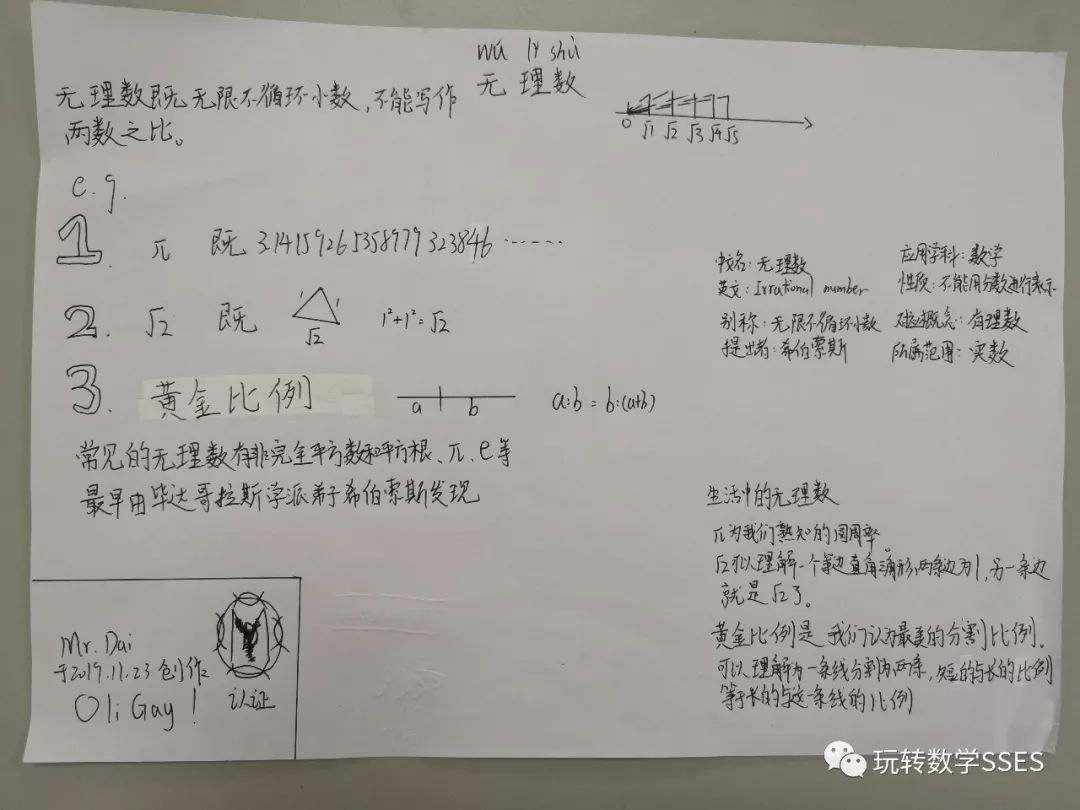 wú lǐ shù
无理数
无理数既无限不循环小数，不能写作
两数之比。
0 √1 √2 √3 √4 √5
e.g.
1. π 既 3.14159265358979323846……
2. √2 既 1 1 √2 1²+1²=√2
3. 黄金比例 a b a:b = b:(a+b)
常见的无理数有非完全平方数和平方根、π、e等
最早由毕达哥拉斯学派弟子希伯索斯发现
中文名：无理数 应用学科：数学
英文：Irrational number 性质：不能用分数进行表示
别称：无限不循环小数 对应概念：有理数
提出者：希伯索斯 所属范围：实数
生活中的无理数
π为我们熟知的圆周率。
√2可以理解一个等边直角三角形，两条边为1，另一条边
就是√2了。
黄金比例是我们认为最美的分割比例。
可以理解为一条线分割为两条，短的与长的比例
等于长的与这一条线的比例
Mr. Dai
于2019.11.23创作
Oli Gay！
认证
玩转数学SSES